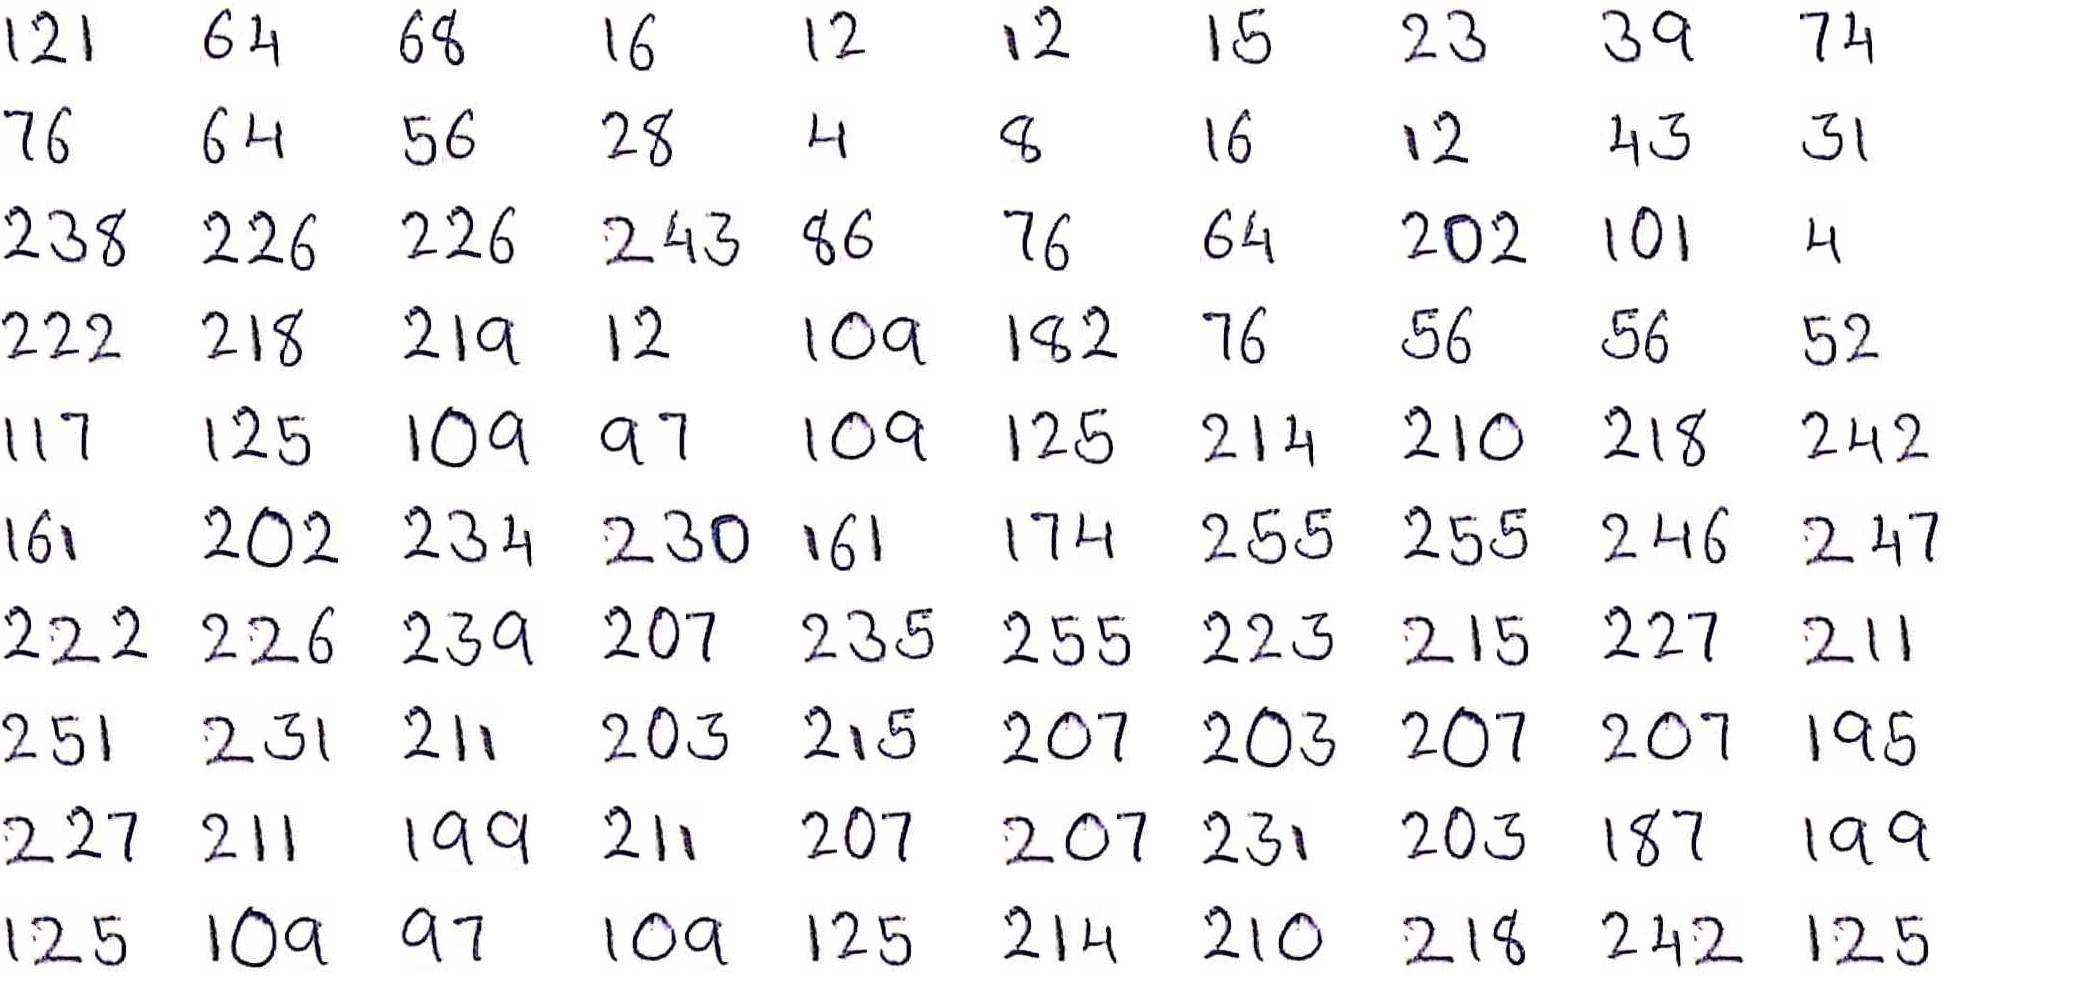 121 64 68 16 12 12 15 23 39 74
76 64 56 28 4 8 16 12 43 31
238 226 226 243 86 76 64 202 101 4
222 218 219 12 109 182 76 56 56 52
117 125 109 97 109 125 214 210 218 242
161 202 234 230 161 174 255 255 246 247
222 226 239 207 235 255 223 215 227 211
251 231 211 203 215 207 203 207 207 195
227 211 199 211 207 207 231 203 187 199
125 109 97 109 125 214 210 218 242 125